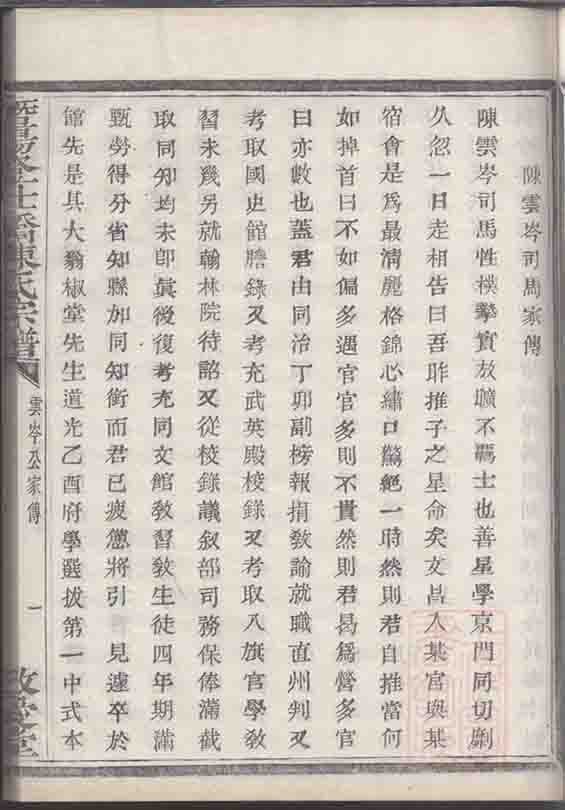 陳雲岑司馬家傳
陳雲岑司馬性樸摯實放曠不羈士也善星學京門同切劘
久忽一日走相告曰吾昨推子之星命矣文昌入某宮與某
宿會是爲最清麗格錦心繡口驚絕一時然則君自推當何
如掉首曰不如偏多遇官官多則不貴然則君曷爲營多官
曰亦數也葢君由同治丁卯副榜報捐敎諭就職直州判又
考取國史館謄錄又考充武英殿校錄又考取八旗官學敎
習未幾另就翰林院待詔又從校錄議敘部司務保俸滿截
取同知均未卽眞後復考充同文館敎習敎生徒四年期滿
甄勞得分省知縣加同知銜而君已疲憊將引 見遽卒於
館先是其大翁椒堂先生道光乙酉府學選拔第一中式本
陳氏宗譜
雲岑公家傳
一